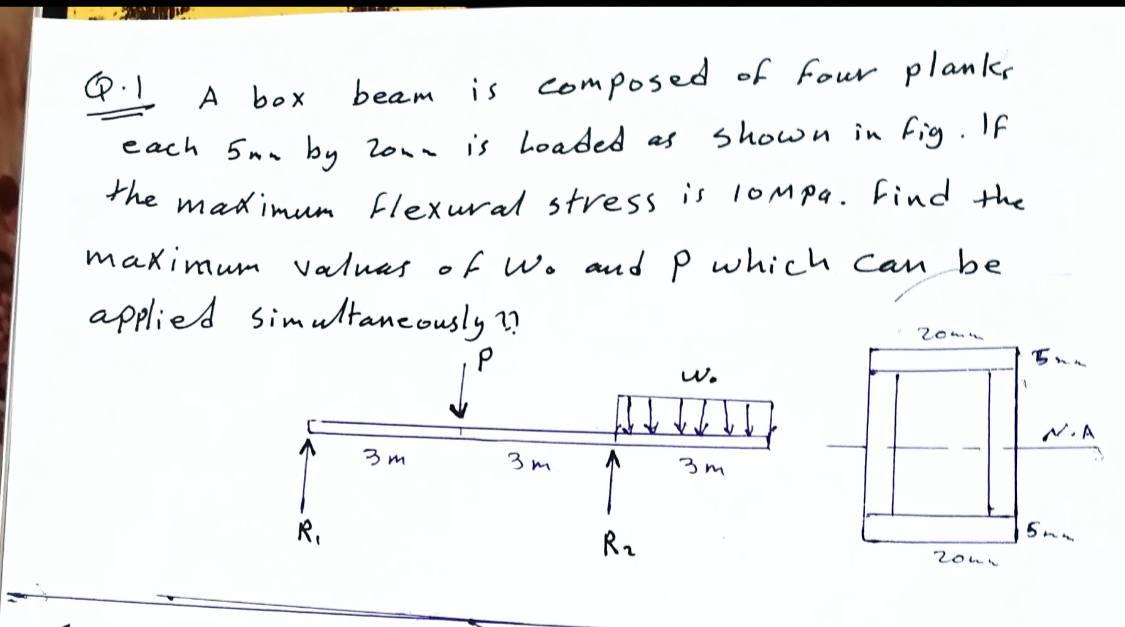 Q.1 A box beam is composed of four planks
each 5mm by 20mm is Loaded as shown in fig. If
the maximum flexural stress is 10Mpa. Find the
maximum values of Wo and P which can be
applied simultaneously??
P
Wo
3m
3m
3m
R1
R2
20mm
5mm
N.A
5mm
20mm